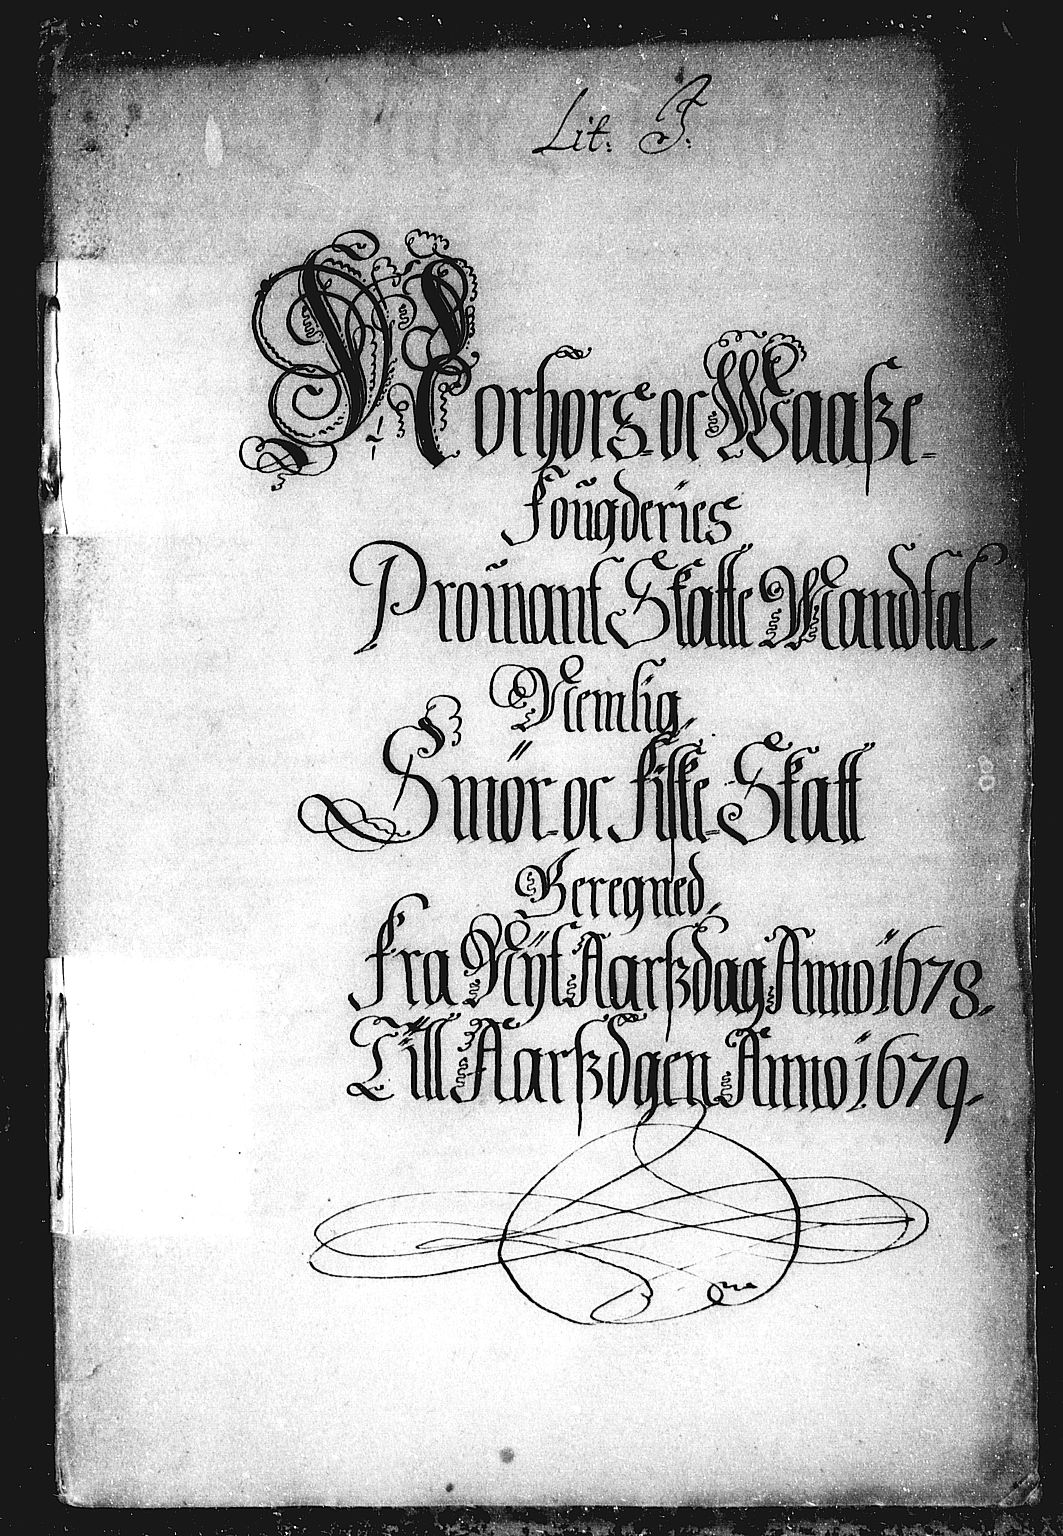 Lit: J:
Norhors oc Waasze-
Fougderies
Proviant Skatte Mandtal.
Nemlig,
Smör-oc Fiske-Skatt
Beregned,
Fra Nyt Aarszdag Anno 1678.
Till Aarszdgen Anno 1679.